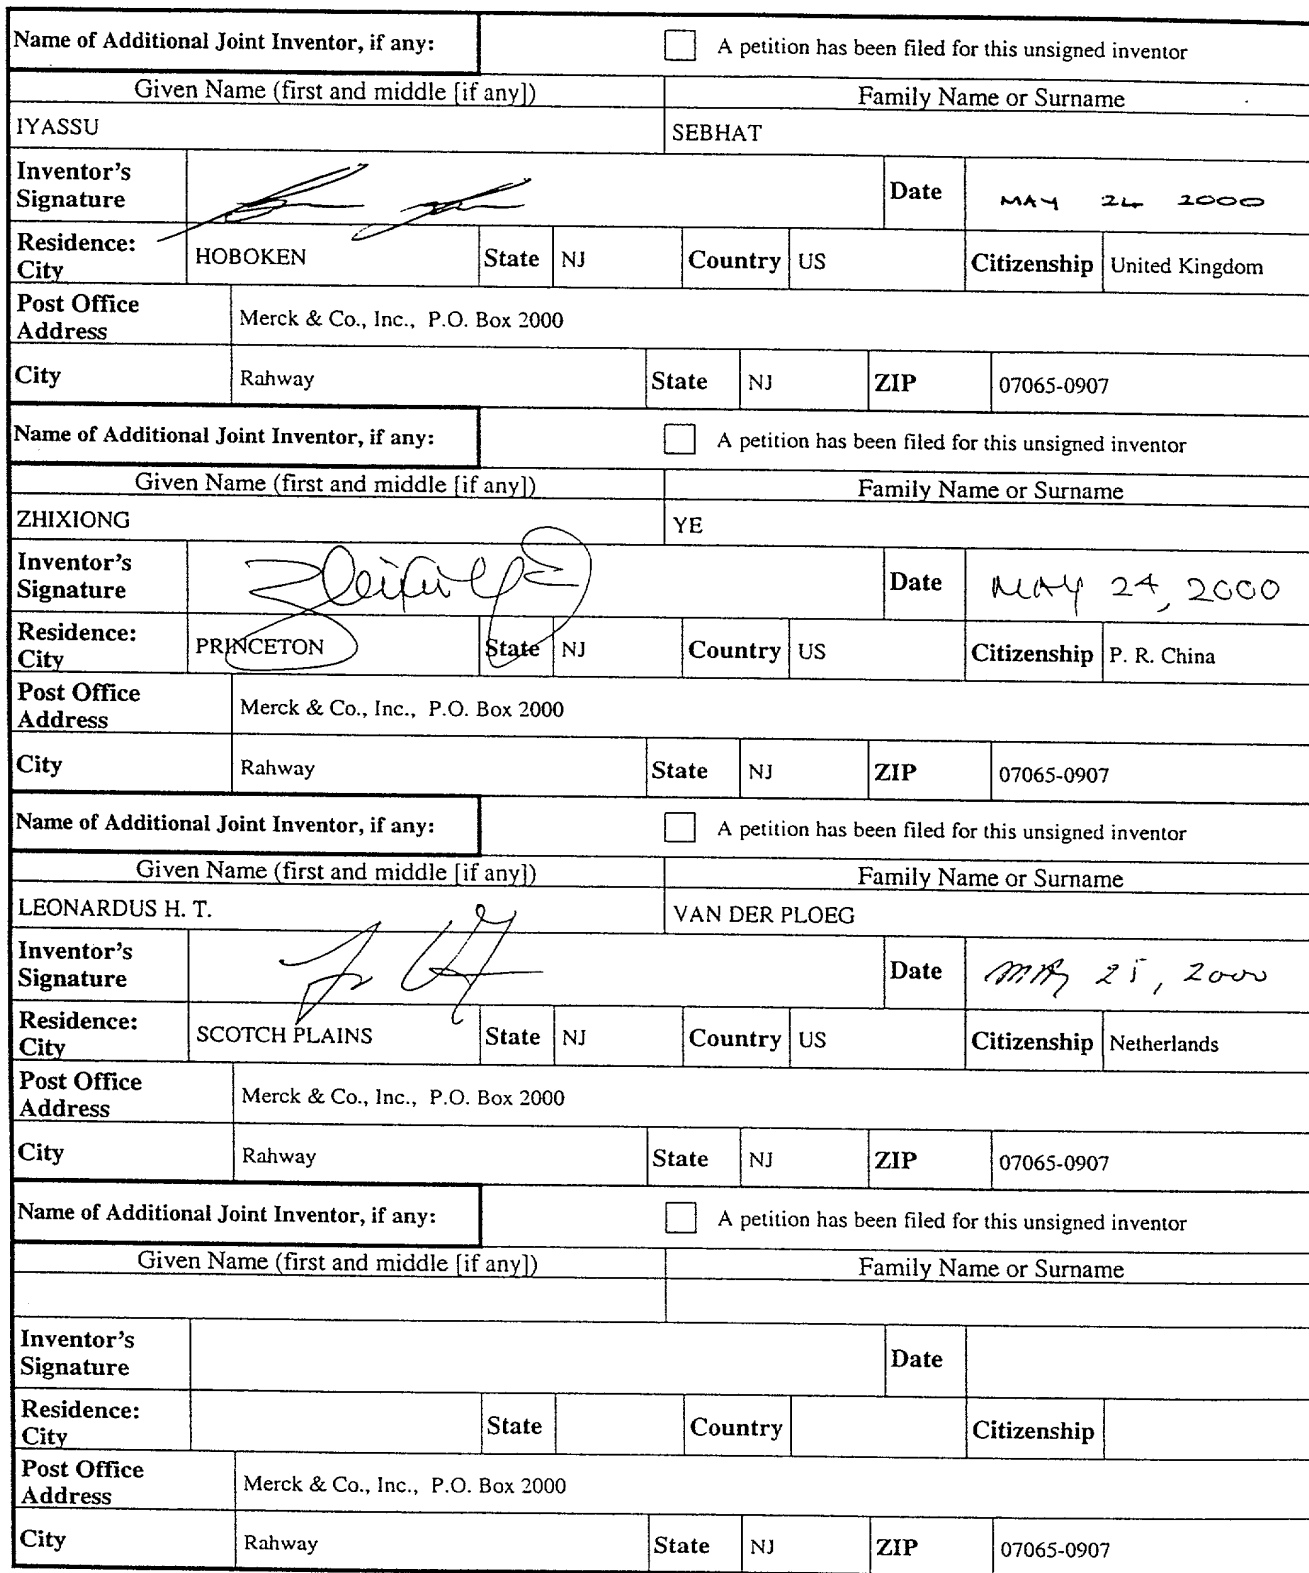 Name of Additional Joint Inventor, if any: A petition has been filed for this unsigned inventor
Given Name (first and middle [if any]) Family Name or Surname
IYASSU SEBHAT
Inventor's Signature Date MAY 24 2000
Residence: City HOBOKEN State NJ Country US Citizenship United Kingdom
Post Office Address Merck & Co., Inc., P.O. Box 2000
City Rahway State NJ ZIP 07065-0907
Name of Additional Joint Inventor, if any: A petition has been filed for this unsigned inventor
Given Name (first and middle [if any]) Family Name or Surname
ZHIXIONG YE
Inventor's Signature Date MAY 24, 2000
Residence: City PRINCETON State NJ Country US Citizenship P. R. China
Post Office Address Merck & Co., Inc., P.O. Box 2000
City Rahway State NJ ZIP 07065-0907
Name of Additional Joint Inventor, if any: A petition has been filed for this unsigned inventor
Given Name (first and middle [if any]) Family Name or Surname
LEONARDUS H. T. VAN DER PLOEG
Inventor's Signature Date May 25, 2000
Residence: City SCOTCH PLAINS State NJ Country US Citizenship Netherlands
Post Office Address Merck & Co., Inc., P.O. Box 2000
City Rahway State NJ ZIP 07065-0907
Name of Additional Joint Inventor, if any: A petition has been filed for this unsigned inventor
Given Name (first and middle [if any]) Family Name or Surname
Inventor's Signature Date
Residence: City State Country Citizenship
Post Office Address Merck & Co., Inc., P.O. Box 2000
City Rahway State NJ ZIP 07065-0907